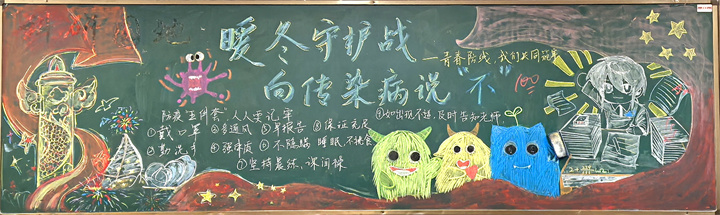 暖冬守护战
——青春防线，我们共同筑牢
向传染病说“不”
100
防疫五件套，人人要记牢
①戴口罩 ③多通风 ⑤早报告 ⑧保证充足睡眠，不挑食
⑨如出现不适，及时告知老师
②勤洗手 ④强体质 ⑥不隐瞒
⑦坚持晨练、课间操